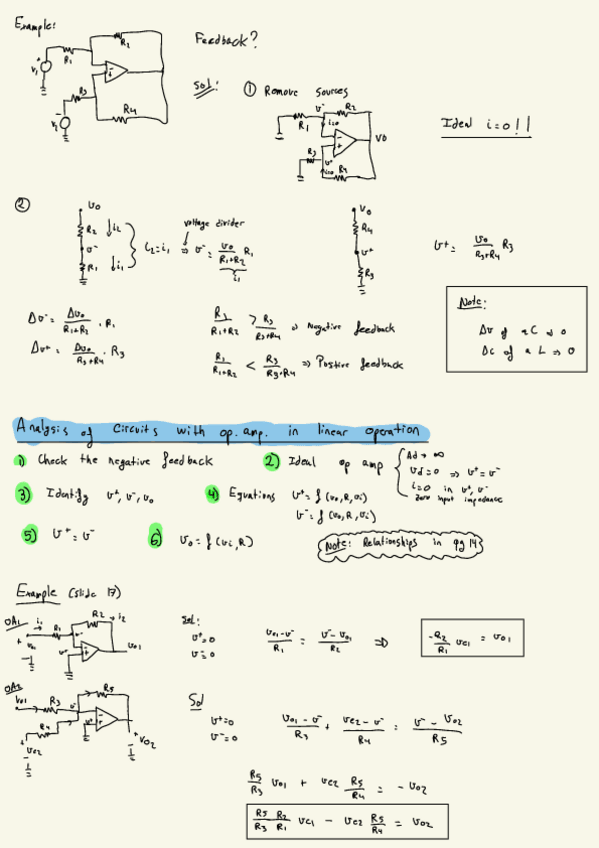 Example:
R2
Feedback?
R1
V1
R3
R4
Sol:
① Remove Sources
V⁻ R2
R1 i=0
VO
R3 V⁺
i=0 R4
Ideal i=0!!
②
Vo
R2 ↓i2
V⁻
R1 ↓i1
i2=i1 ⇒ V⁻ = Vo/(R1+R2) R1
voltage divider
i1
Vo
R4
V⁺
R3
V⁺ = Vo/(R3+R4) R3
ΔV⁻ = ΔVo/(R1+R2) · R1
ΔV⁺ = ΔVo/(R3+R4) · R3
R1/(R1+R2) > R3/(R3+R4) ⇒ Negative feedback
R1/(R1+R2) < R3/(R3+R4) ⇒ Postive feedback
Note:
Δv of a C ⇒ 0
Δc of a L ⇒ 0
Analysis of Circuits with op. amp. in linear operation
1) Check the negative feedback
2) Ideal op amp
Ad → ∞
Vd=0 ⇒ V⁺=V⁻
i=0 in V⁺, V⁻
zero input impedance
3) Identify V⁺, V⁻, Vo
4) Equations V⁺ = f(vo,R,vi)
V⁻ = f(vo,R,vi)
5) V⁺ = V⁻
6) Vo = f(vi,R)
Note: Relationships in pg 14
Example (slide 17)
OA1 R1 R2 i2
V⁻
V⁺
Vo1
Sol:
V⁺=0
V⁻=0
(Vo1-V⁻)/R1 = (V⁻-Vo1)/R2 ⇒ -R2/R1 ve1 = vo1
OA2
Vo1 R3 R5
R4
V⁻
V⁺
Vo2
Sol
V⁺=0
V⁻=0
(Vo1 - V⁻)/R3 + (ve2 - V⁻)/R4 = (V⁻ - Vo2)/R5
R5/R3 Vo1 + ve2 R5/R4 = - Vo2
R5/R3 R2/R1 ve1 - ve2 R5/R4 = Vo2